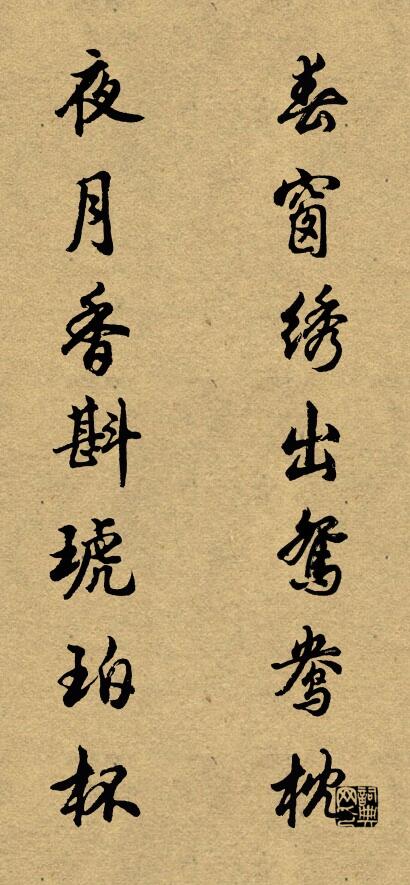 春窗绣出鸳鸯枕
夜月香斟琥珀杯